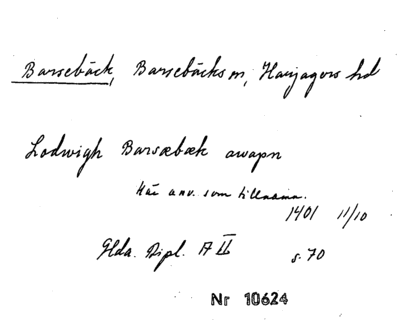 Barsebäck, Barsebäcks sn, Harjagers hd
Lodwigh Barsæbæk awapn
Här anv. som tillnamn.
1401 11/10
Glda. Dipl. A II s. 70
Nr 10624